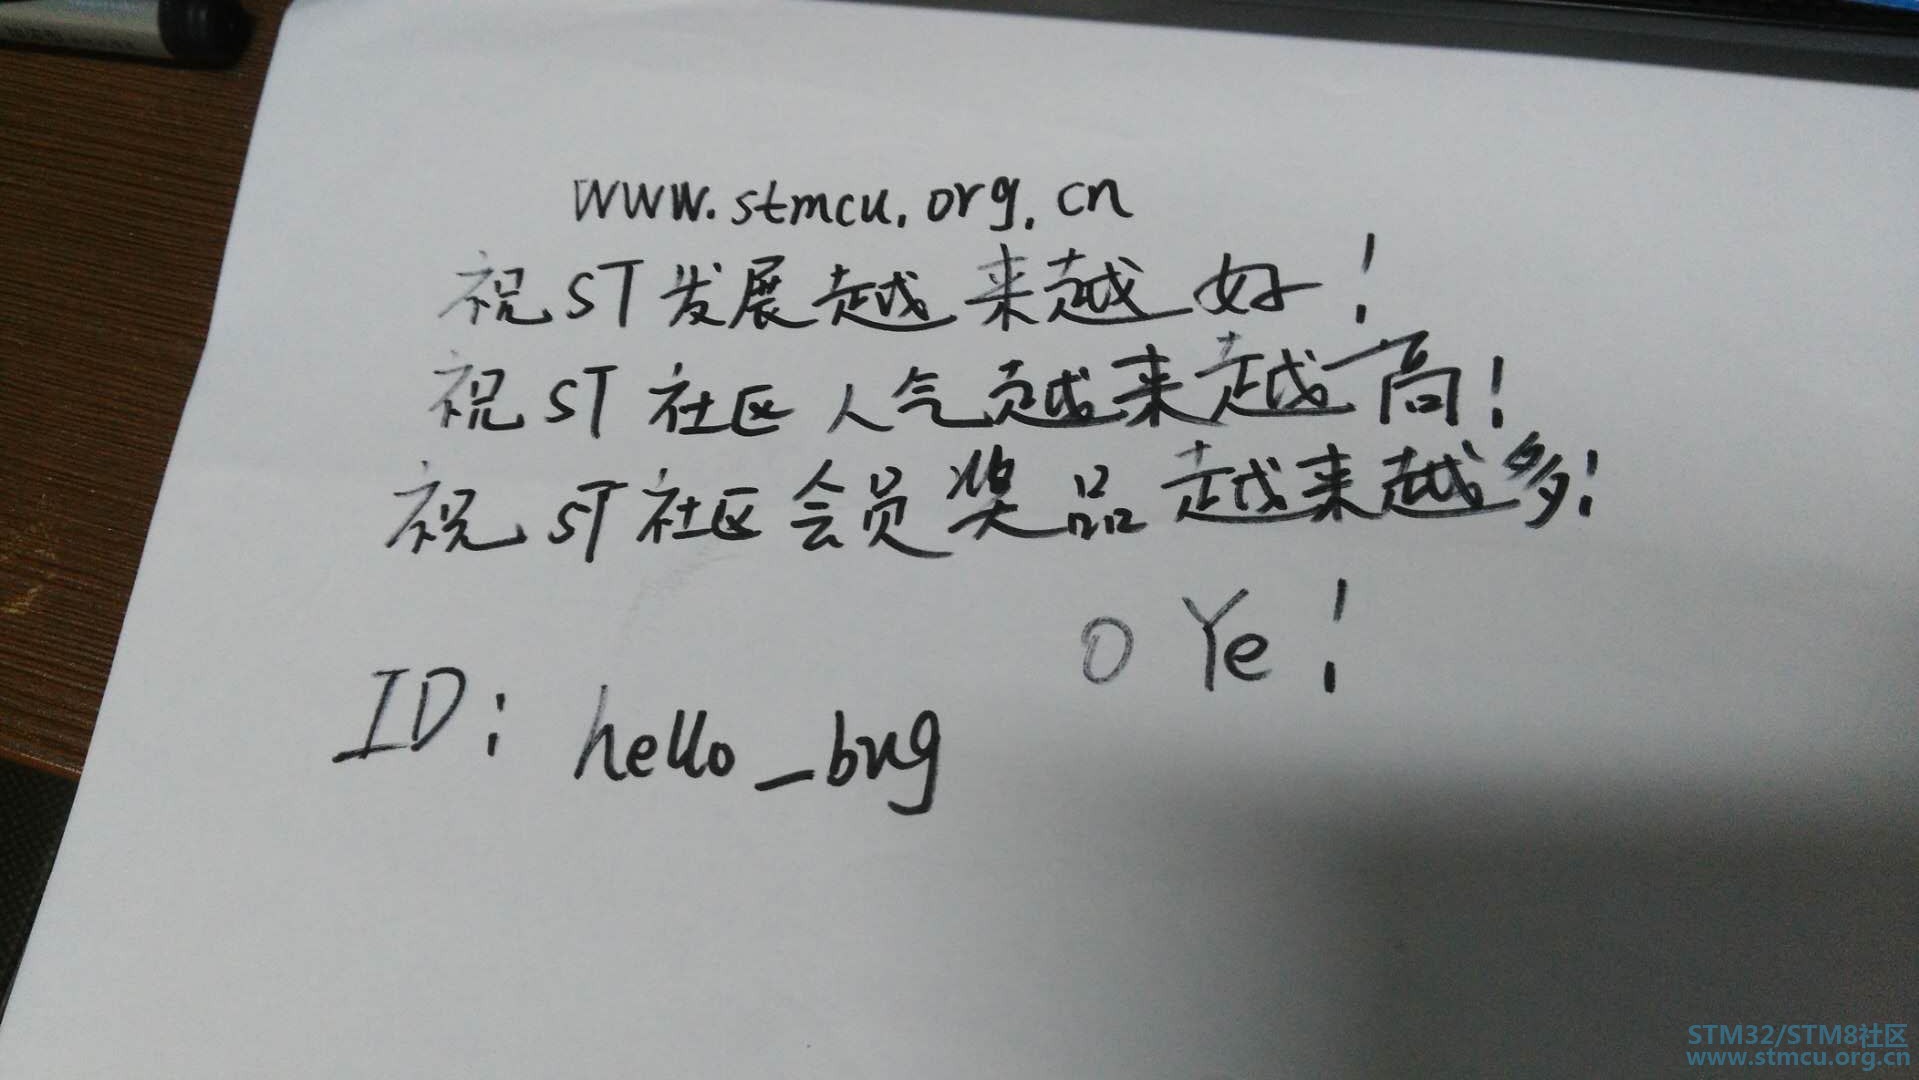 www.stmcu.org.cn
祝ST发展越来越好！
祝ST社区人气越来越高！
祝ST社区会员奖品越来越多！
O Ye！
ID：hello_bug
STM32/STM8社区
www.stmcu.org.cn